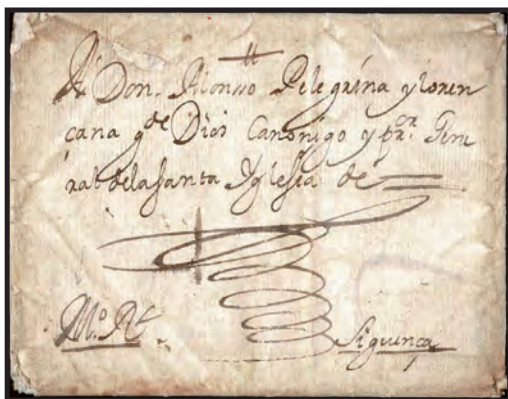 A Don. Alonsso Pelegrina y loren
cana g.de Dios Canonigo y p.or Gene
ral de la Santa Yglesia de
M.o R.l
Siguença